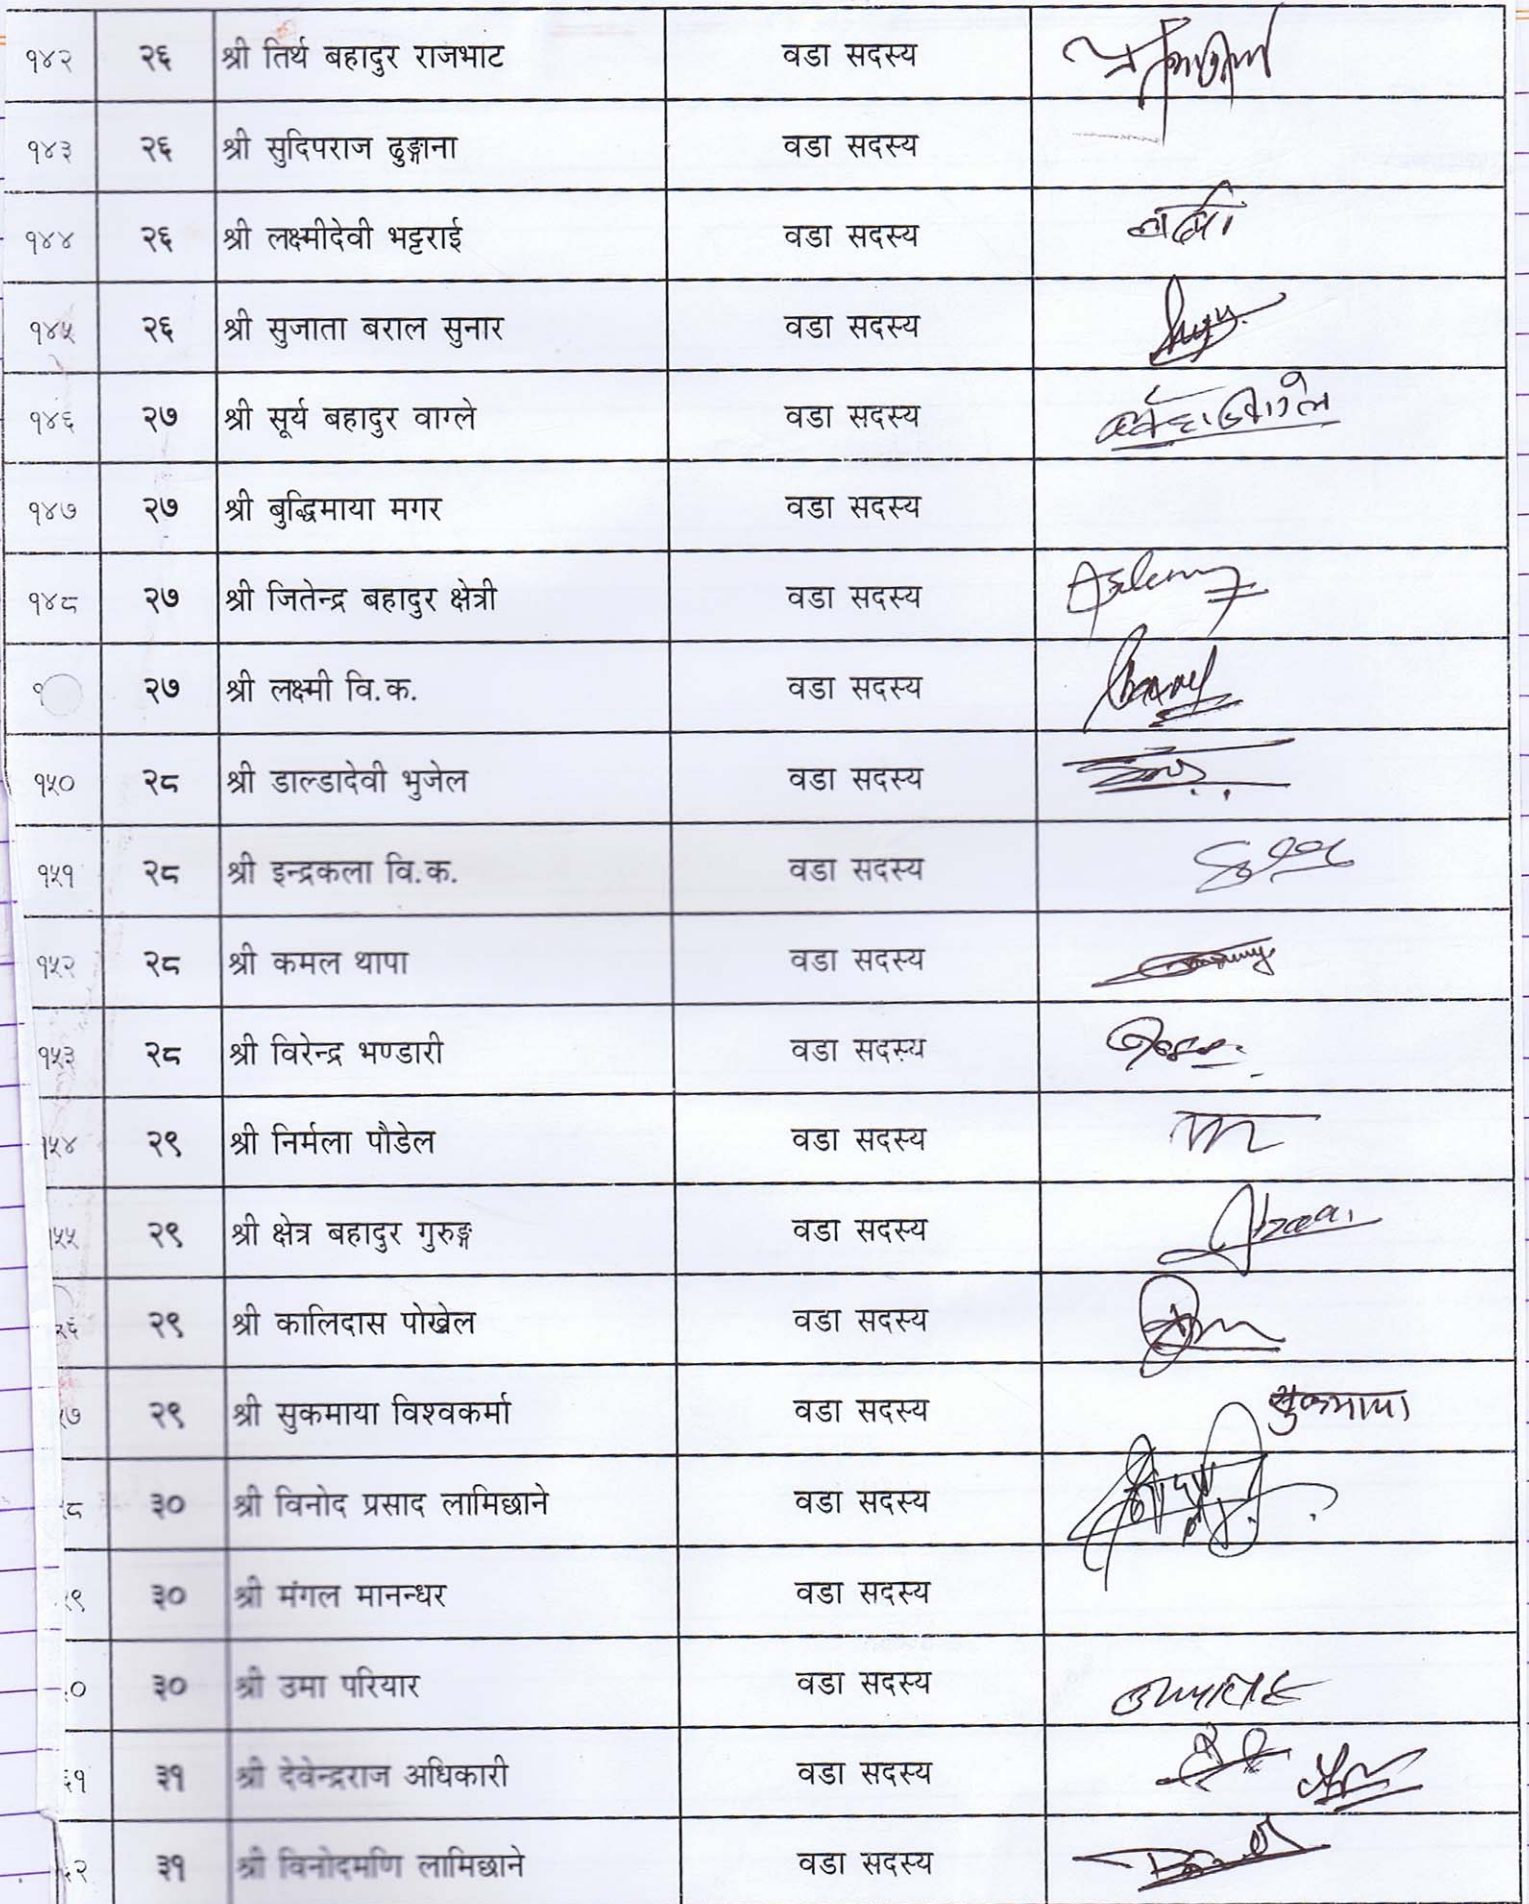 १४२ २६ श्री तिर्थ बहादुर राजभाट वडा सदस्य
१४३ २६ श्री सुदिपराज ढुङ्गाना वडा सदस्य
१४४ २६ श्री लक्ष्मीदेवी भट्टराई वडा सदस्य
१४५ २६ श्री सुजाता बराल सुनार वडा सदस्य
१४६ २७ श्री सूर्य बहादुर वाग्ले वडा सदस्य
१४७ २७ श्री बुद्धिमाया मगर वडा सदस्य
१४८ २७ श्री जितेन्द्र बहादुर क्षेत्री वडा सदस्य
१ २७ श्री लक्ष्मी वि.क. वडा सदस्य
१५० २८ श्री डाल्डादेवी भुजेल वडा सदस्य
१५१ २८ श्री इन्द्रकला वि.क. वडा सदस्य
१५२ २८ श्री कमल थापा वडा सदस्य
१५३ २८ श्री विरेन्द्र भण्डारी वडा सदस्य
१५४ २९ श्री निर्मला पौडेल वडा सदस्य
५५ २९ श्री क्षेत्र बहादुर गुरुङ्ग वडा सदस्य
५६ २९ श्री कालिदास पोख्रेल वडा सदस्य
७ २९ श्री सुकमाया विश्वकर्मा वडा सदस्य सुकमाया
८ ३० श्री विनोद प्रसाद लामिछाने वडा सदस्य
९ ३० श्री मंगल मानन्धर वडा सदस्य
० ३० श्री उमा परियार वडा सदस्य
६१ ३१ श्री देवेन्द्रराज अधिकारी वडा सदस्य
६२ ३१ श्री विनोदमणि लामिछाने वडा सदस्य